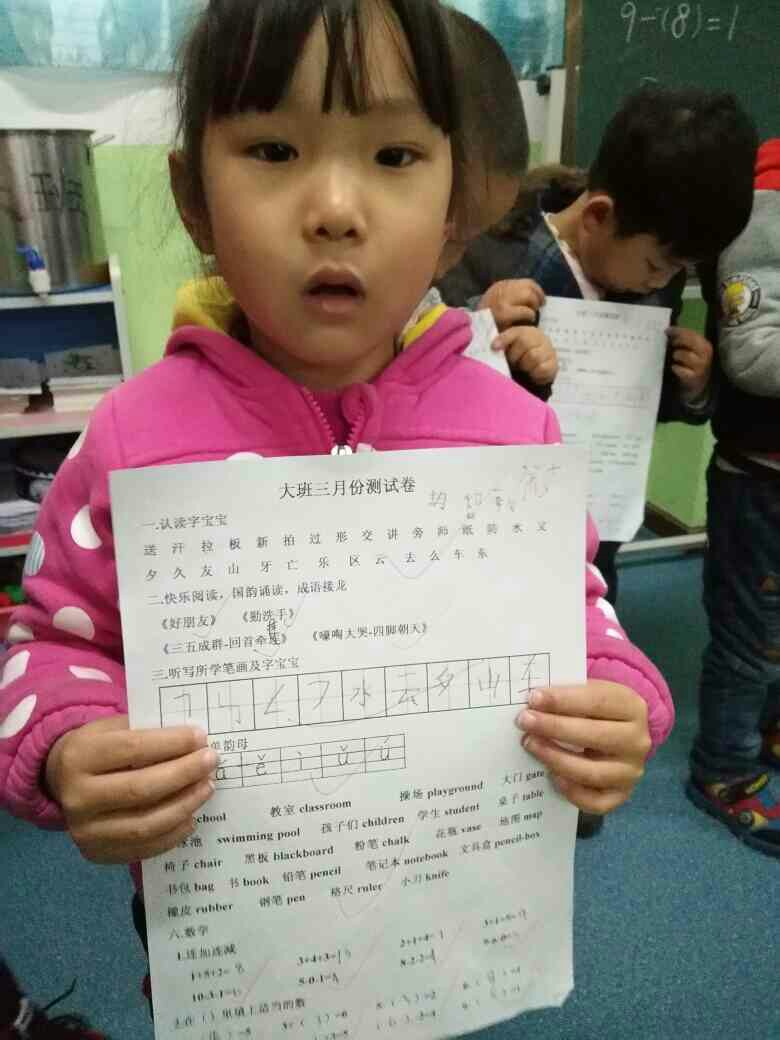 9-(8)=1
大班三月份测试卷
一.认读字宝宝
送 汗 拉 板 新 拍 过 形 交 讲 旁 师 纸 防 水 义
夕 久 友 山 牙 亡 乐 区 云 去 么 车 东
二.快乐阅读，国韵诵读，成语接龙
《好朋友》 《勤洗手》
《三五成群-回首牵连》 《嚎啕大哭-四脚朝天》
三.听写所学笔画及字宝宝
水 去 夕 山 车
单韵母
á ě ì ǔ ǘ
chool 教室 classroom 操场 playground 大门 gate
池 swimming pool 孩子们 children 学生 student 桌子 table
椅子 chair 黑板 blackboard 粉笔 chalk 花瓶 vase 地图 map
书包 bag 书 book 铅笔 pencil 笔记本 notebook 文具盒 pencil-box
橡皮 rubber 钢笔 pen 格尺 ruler 小刀 knife
六.数学
1.连加连减
1+5+2=8 3+4+3=10 2+1+4=
10-3-1= 5-0-1=4 8-2-2=4
2.在（ ）里填上适当的数